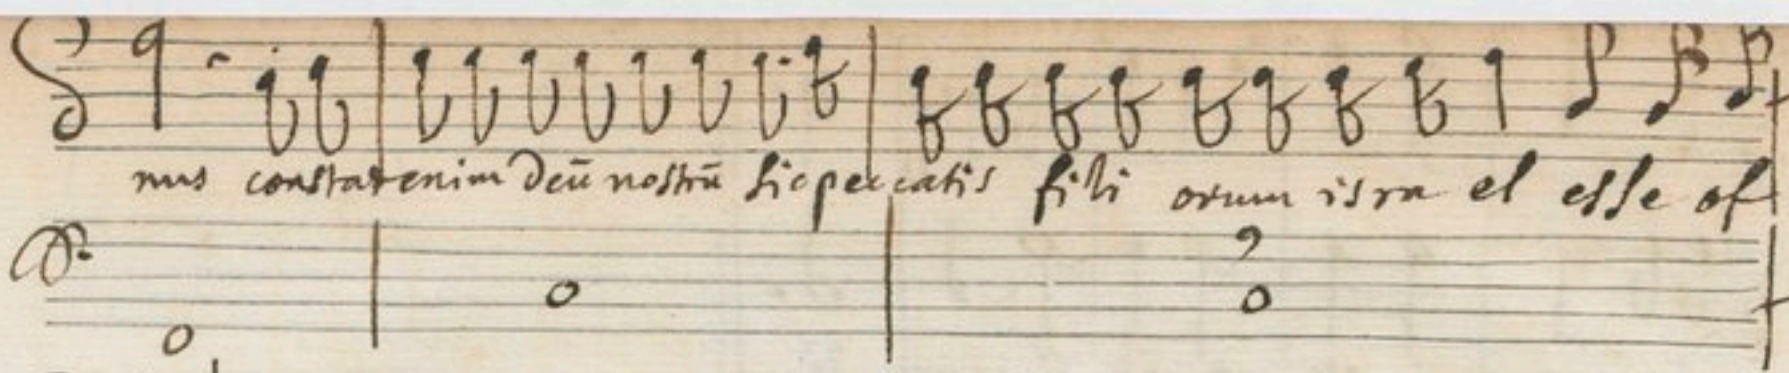 nus constat enim deū nostrū sic peccatis fili orum isra el esse of
9